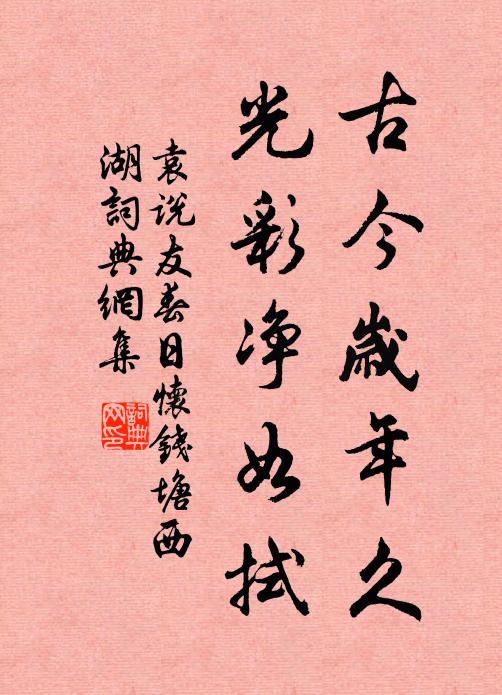 古今歲年久
光彩淨如拭
袁說友春日懷錢塘西
湖詞典網集
詞典
网印